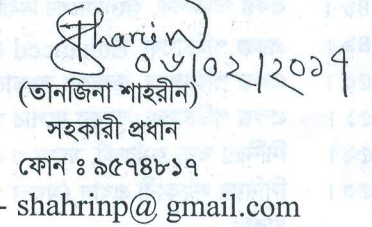 Sharin
০৬/০২/২০১৭
(তানজিনা শাহরীন)
সহকারী প্রধান
ফোন ঃ ৯৫৭৪৮১৭
- shahrinp@ gmail.com